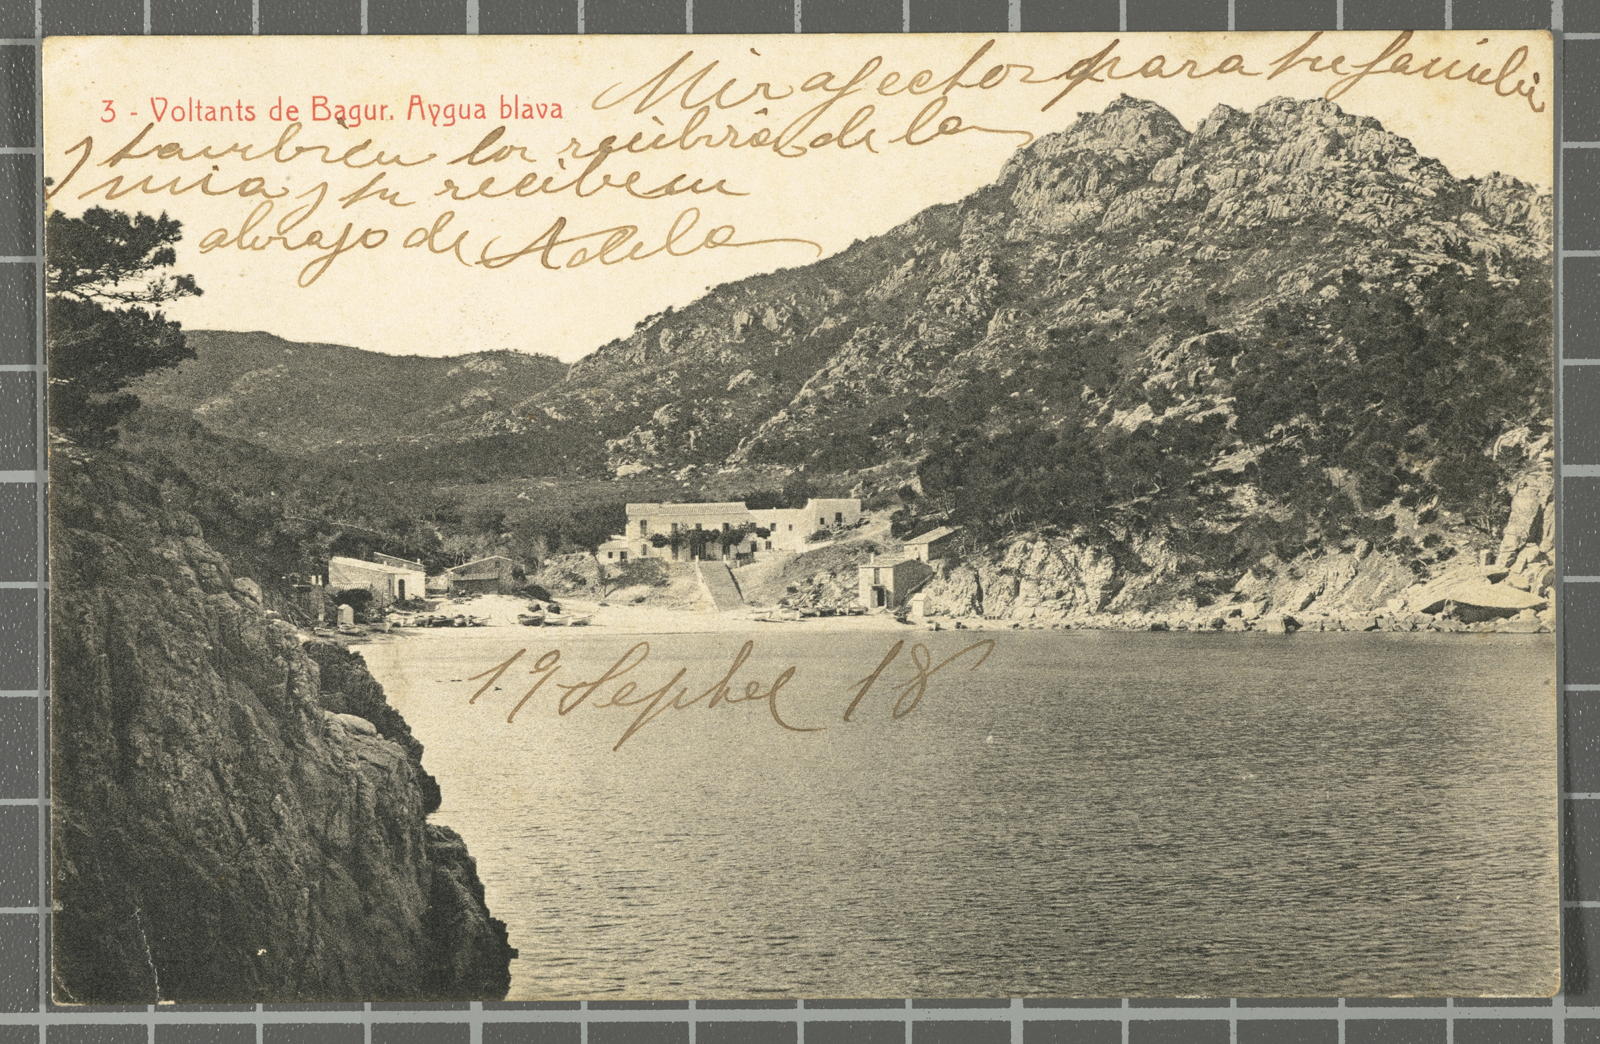 3 - Voltants de Bagur. Aygua blava
Mis afectos para tu familia
y tambien los recibirás de la
mia y tu recibe un
abrazo de Adela
19 Sepbre 18